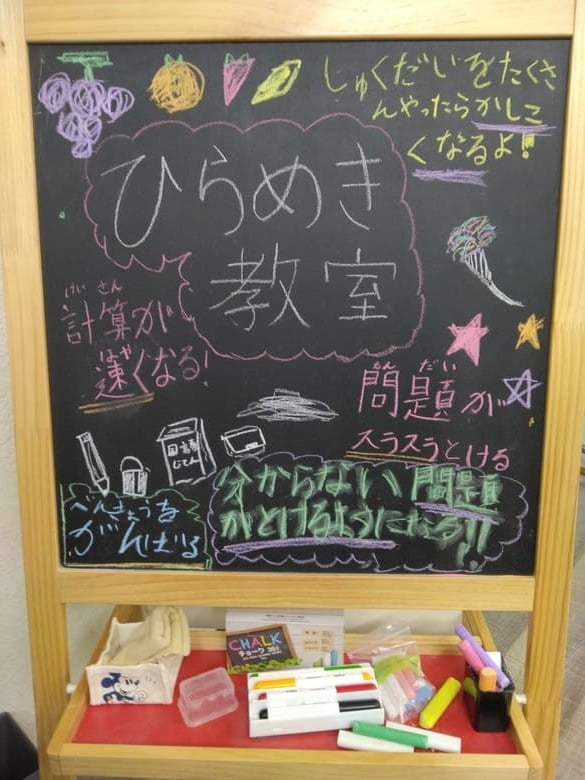 しゅくだいをたくさ
んやったらかしこ
くなるよ!
ひらめき
教室
けいさん
計算が
はや
速くなる!
もんだい
問題が
スラスラとける
国語
じてん
分からない問題
がとけるようになる!!
べんきょうを
がんばる
CHALK
チョーク